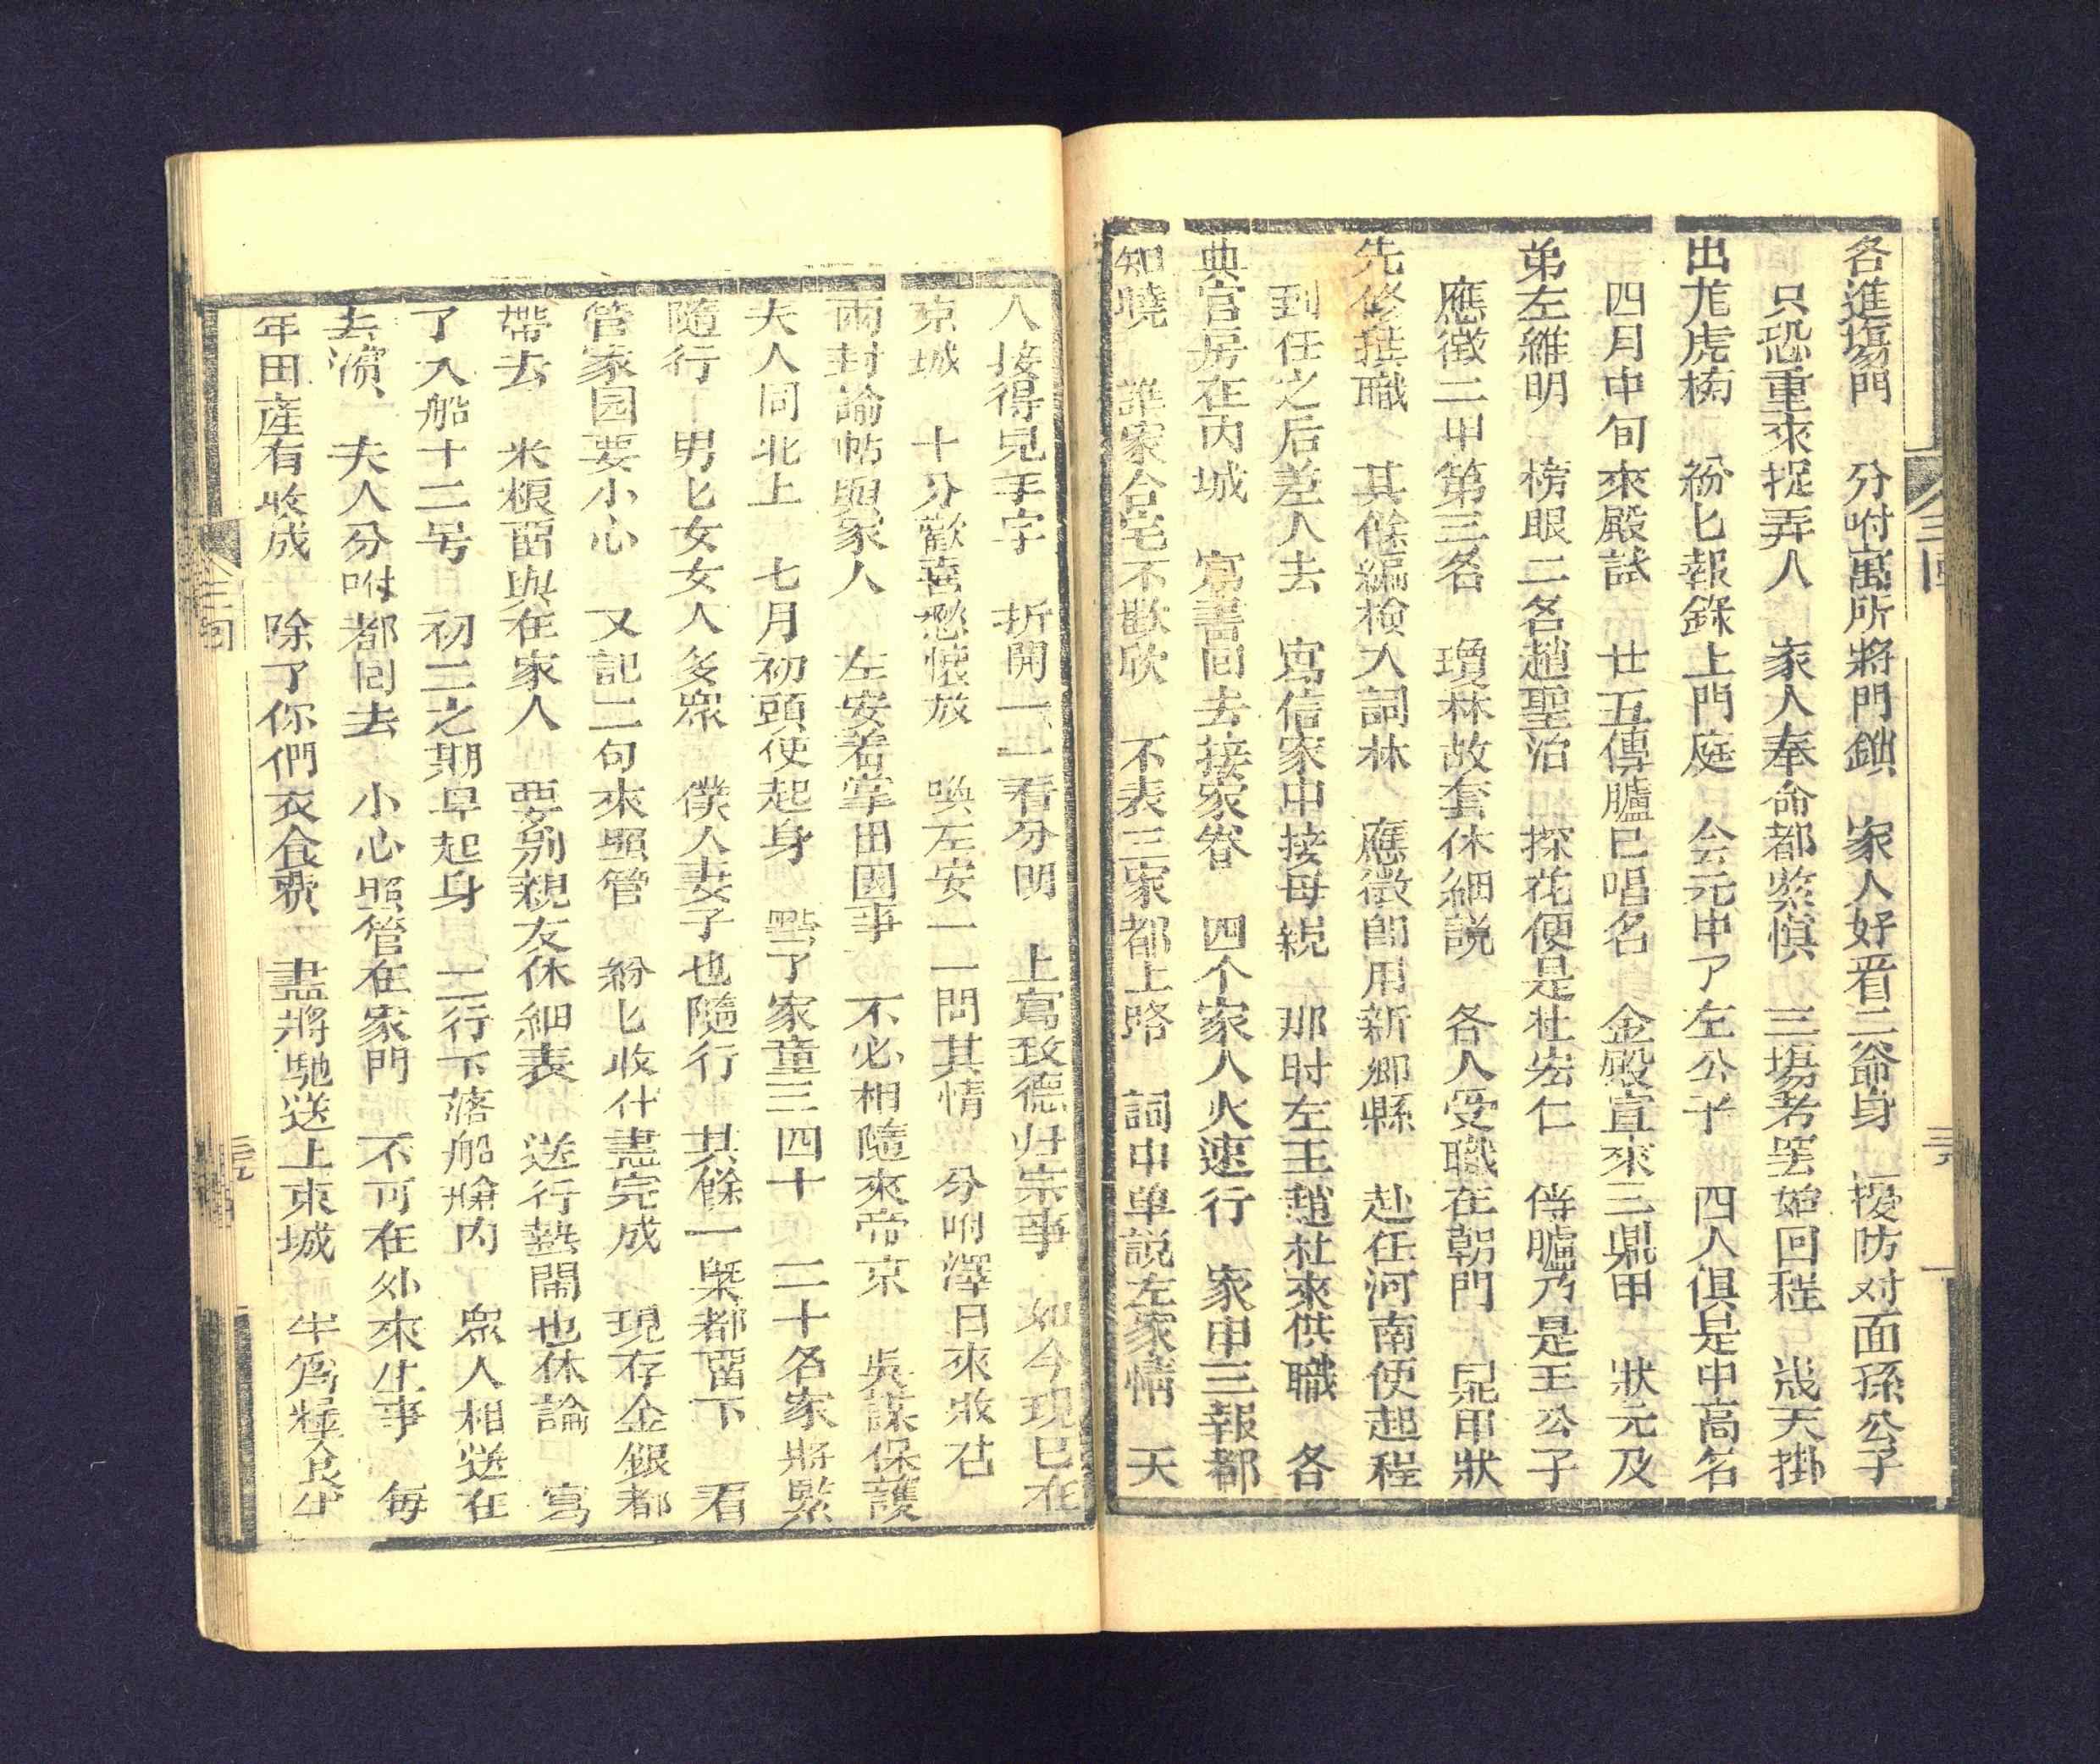 各進塲門　分咐寓所將門鎖　家人好看二爺身　提防对面孫公子
只恐重來捉弄人　家人奉命都𦂳慎　三塲考罢始回程　幾天掛
出龙虎榜　紛匕報錄上門庭　会元中了左公子　四人俱是中高名
四月中旬來殿試　廿五傳臚已唱名　金殿宣來三鼎甲　狀元及
弟左維明　榜眼二名趙聖治　探花便是杜宏仁　傳臚乃是王公子
應徵二甲第三名　瓊林故套休細説　各人受職在朝門　鼎甲狀
先修撰職　其餘編檢入詞林　應徵即用新鄉縣　赴任河南便起程
到任之后差人去　寫信家中接母親　那时左王趙杜來供職　各
典官房在内城　寫書回去接家眷　四个家人火速行　家中三報都
知曉　誰家合宅不歡欣　不表三家都上路　詞中单説左家情　天
人接得兒手字　折開一一看分明　上寫致德归宗事　如今現已在
京城　十分歡喜愁懷放　喚左安一一問其情　分咐澤日來收什
兩封諭帖與家人　左安着掌田園事　不必相隨來帝京　吳謀保護
夫人同北上　七月初頭使起身　㸃了家童三四十　二十名家將緊
隨行　男匕女女人多眾　僕人妻子也隨行　其餘一槩都留下　看
管家园要小心　又記二句來照管　紛匕收什盡完成　現存金銀都
帶去　米粮留與在家人　要别親友休細表　送行𤍠閙也休論　寫
了入船十二号　初二之期早起身　一行下落船艙内　眾人相送在
去濵　夫人分咐都回去　小心照管在家門　不可在外來生事　每
年田産有收成　除了你們衣食費　盡將馳送上京城
三回
三回